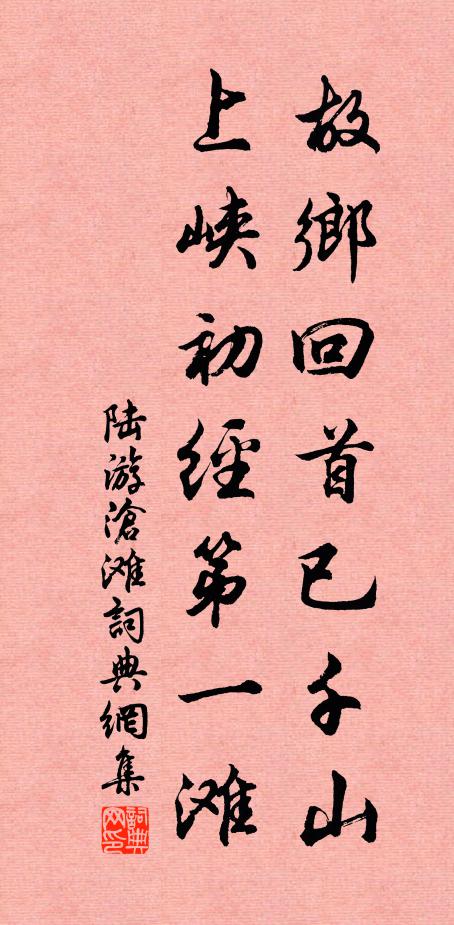 故鄉回首已千山
上峽初經第一滩
陆游滄滩詞典網集
詞典
网印